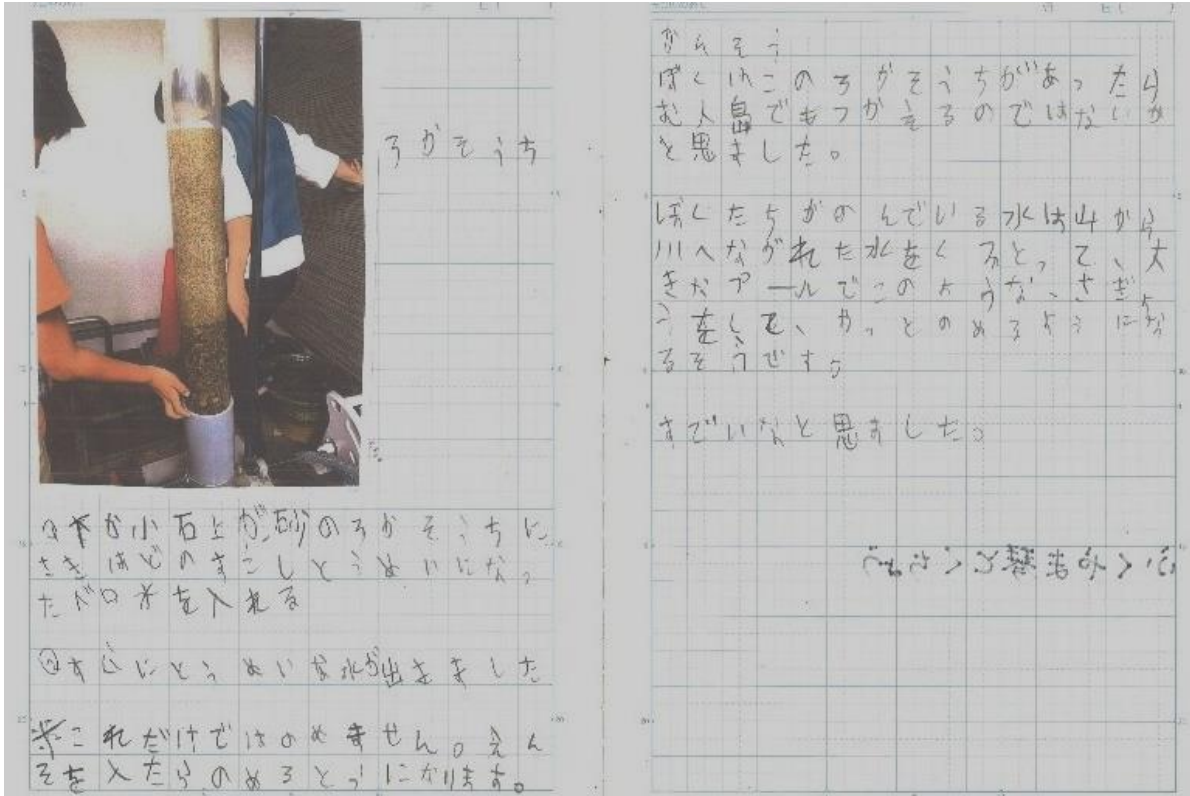 ろかそうち
①下が小石上が砂のろかそうちに
さきほどのすこしとうめいになっ
たドロ水を入れる
②すぐにとうめいな水が出きました
※これだけではのめません。えん
そを入たらのめるとうになります。
かんそう
ぼくはこのろかそうちがあったら
む人島でもつかえるのではないか
と思ました。
ぼくたちがのんでいる水は山から
川へながれた水をくろとって、大
きなプールでこのような、さぎょ
うをして、やっとのめるようにな
るそうです。
すごいなと思ました。